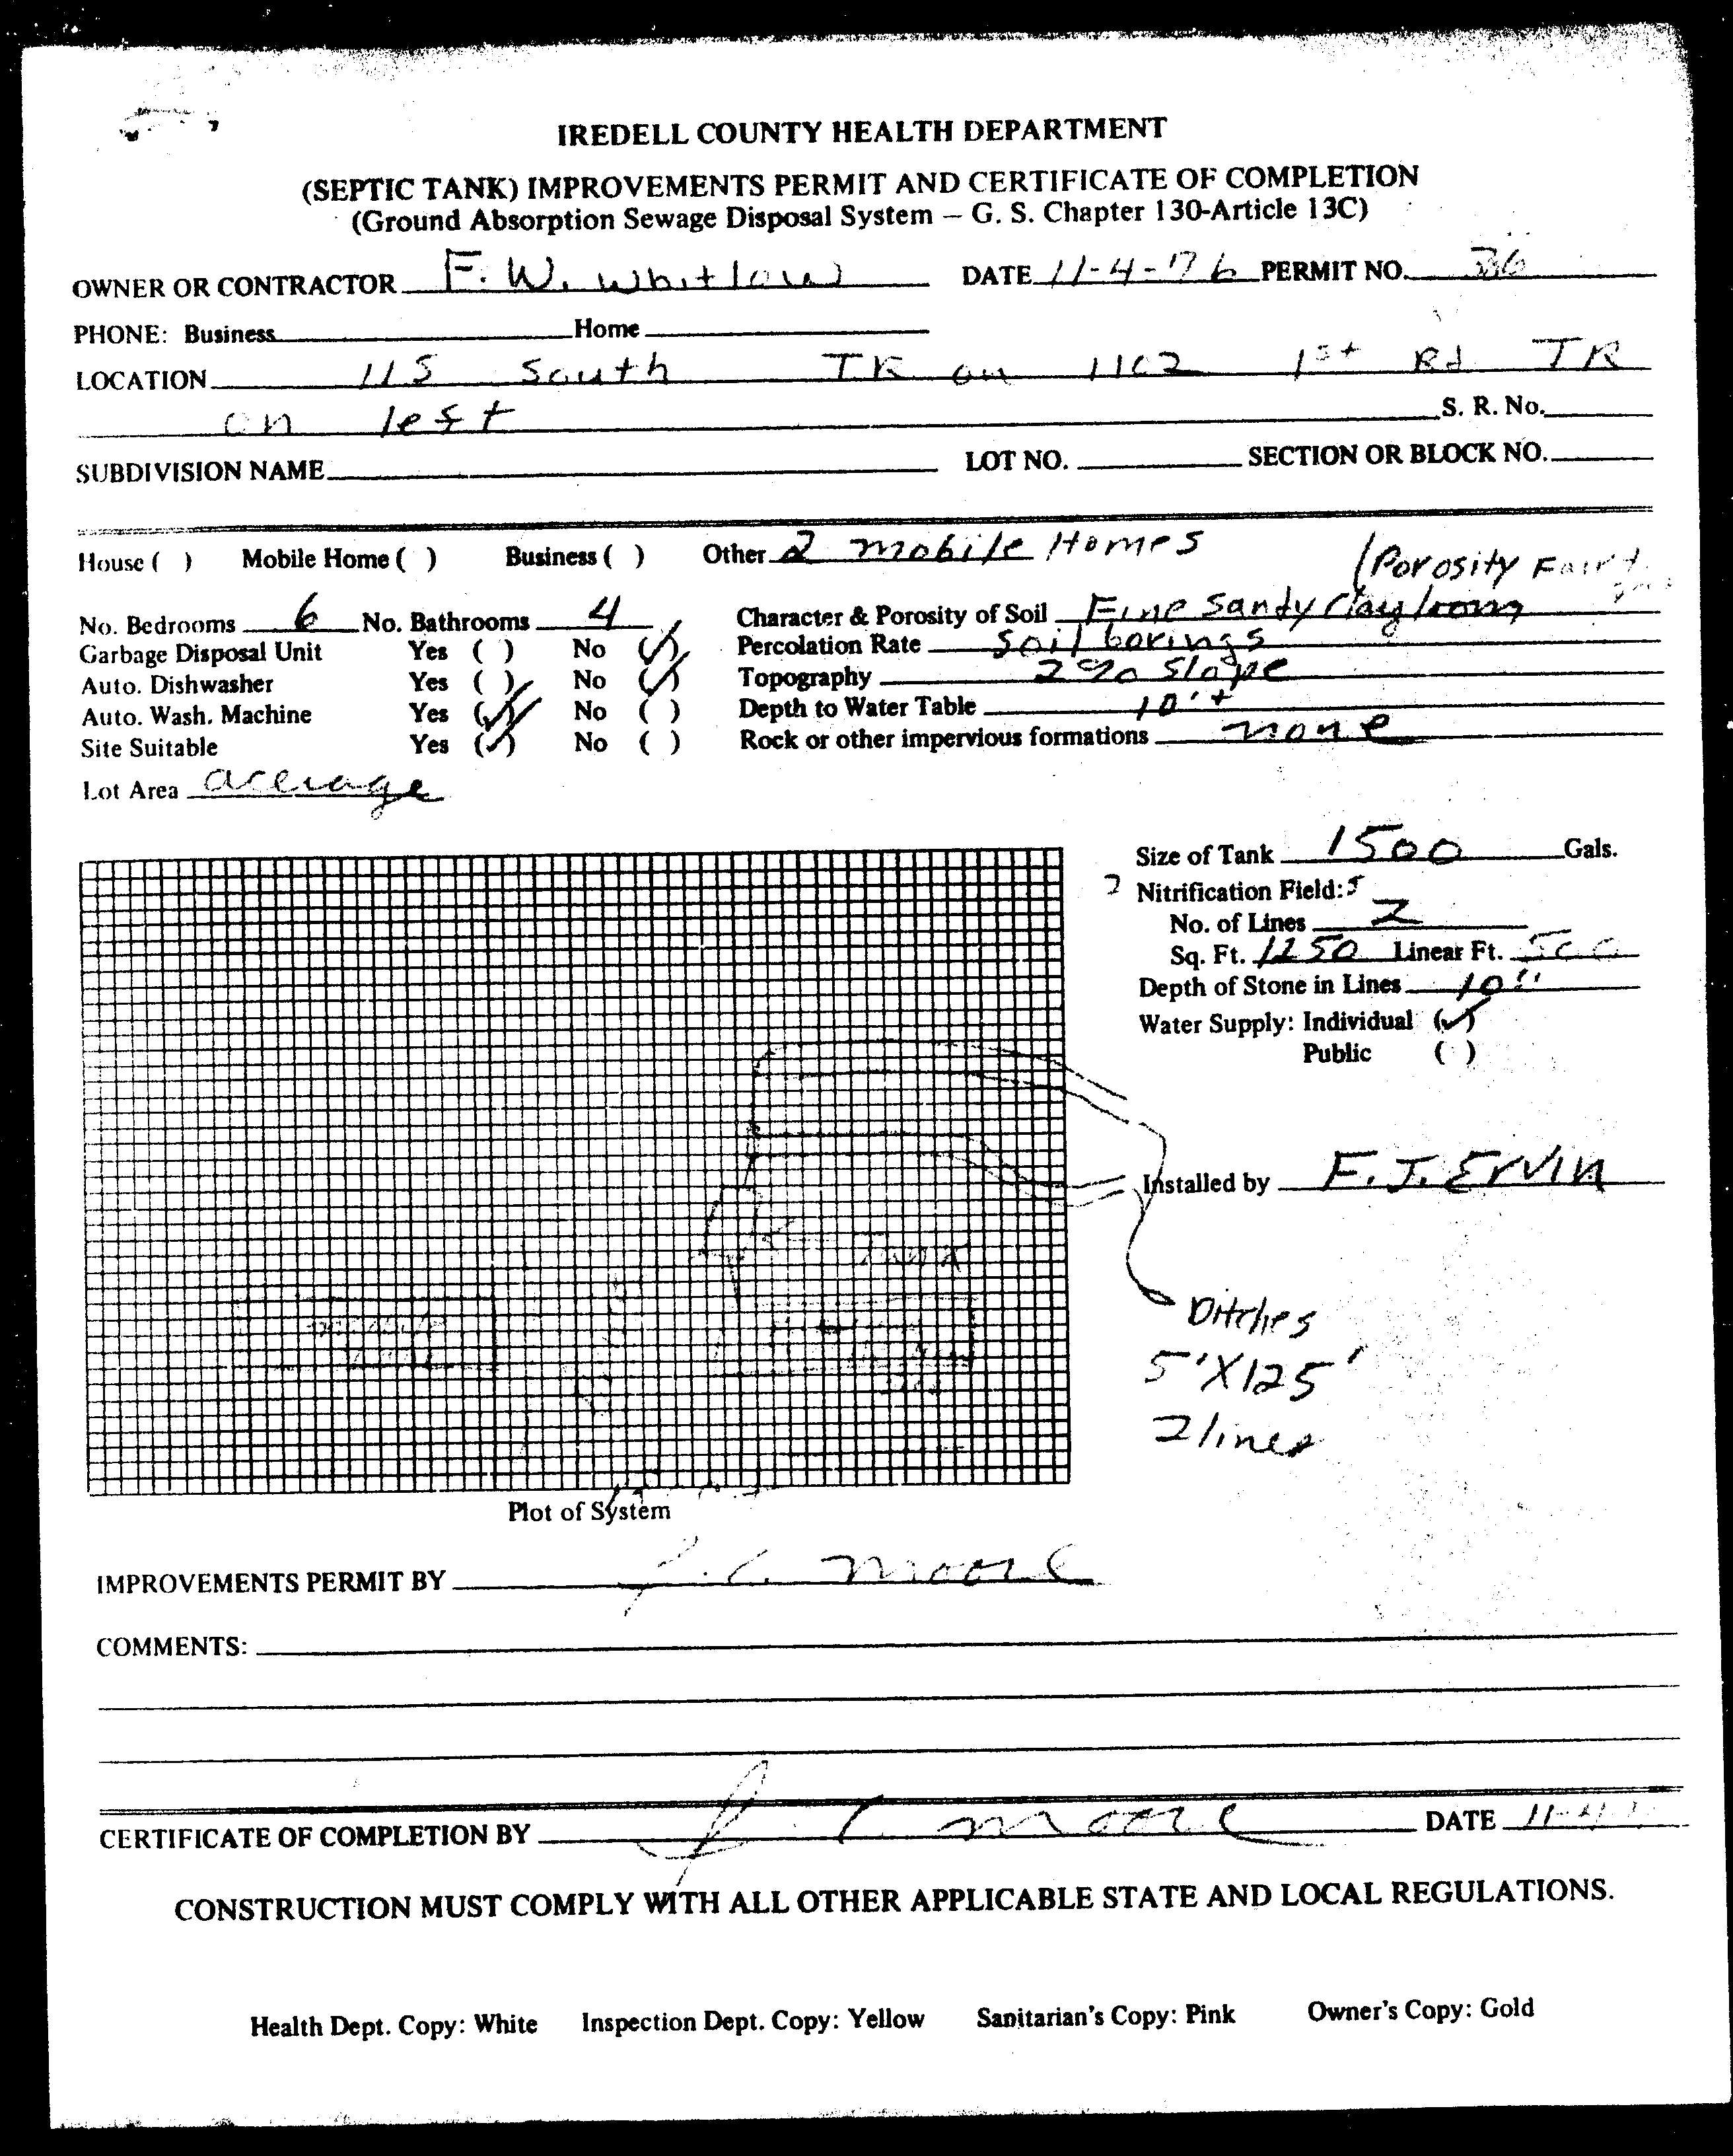 IREDELL COUNTY HEALTH DEPARTMENT
(SEPTIC TANK) IMPROVEMENTS PERMIT AND CERTIFICATE OF COMPLETION
(Ground Absorption Sewage Disposal System – G. S. Chapter 130-Article 13C)
OWNER OR CONTRACTOR F. W. Whitlow DATE 11-4-76 PERMIT NO. 36
PHONE: Business Home
LOCATION 115 South TR on 1102 1st Rd TR
on left S. R. No.
SUBDIVISION NAME LOT NO. SECTION OR BLOCK NO.
House ( ) Mobile Home ( ) Business ( ) Other 2 mobile Homes
(Porosity Fair
No. Bedrooms 6 No. Bathrooms 4 Character & Porosity of Soil Fine Sandy Clay loam
Garbage Disposal Unit Yes ( ) No (✓) Percolation Rate Soil borings
Auto. Dishwasher Yes ( ) No (✓) Topography 2% Slope
Auto. Wash. Machine Yes (✓) No ( ) Depth to Water Table 10'+
Site Suitable Yes (✓) No ( ) Rock or other impervious formations none
Lot Area acerage
Size of Tank 1500 Gals.
Nitrification Field:
No. of Lines 2
Sq. Ft. 1250 Linear Ft. 500
Depth of Stone in Lines 10"
Water Supply: Individual (✓)
Public ( )
Installed by F. J. Ervin
Ditches
5'X125'
2 lines
Plot of System
IMPROVEMENTS PERMIT BY J. C. Moore
COMMENTS:
CERTIFICATE OF COMPLETION BY J. C. Moore DATE 11-4
CONSTRUCTION MUST COMPLY WITH ALL OTHER APPLICABLE STATE AND LOCAL REGULATIONS.
Health Dept. Copy: White Inspection Dept. Copy: Yellow Sanitarian's Copy: Pink Owner's Copy: Gold